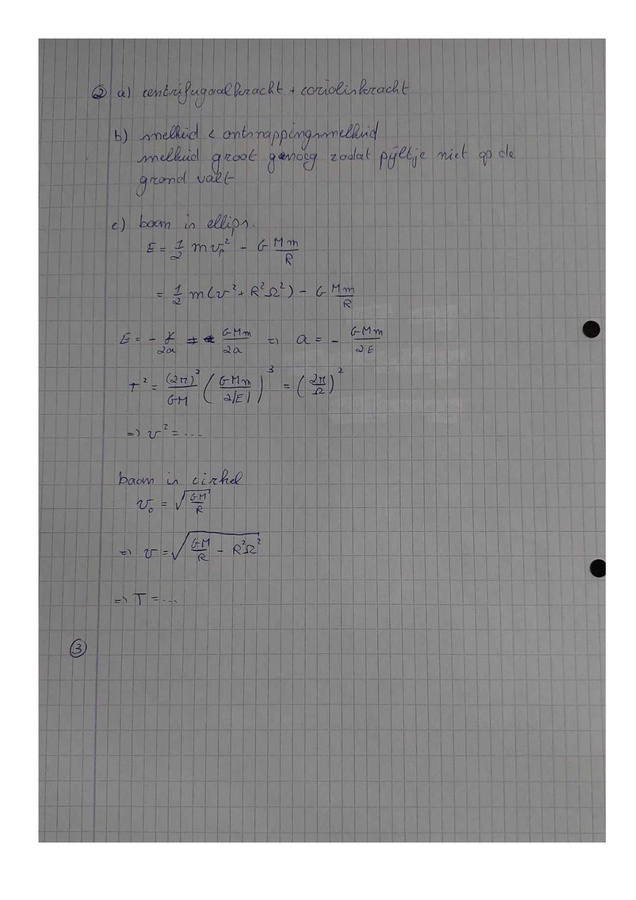 ② a) centrifugaalkracht + corioliskracht
b) snelheid < ontsnappingssnelheid
snelheid groot genoeg zodat pijltje niet op de
grond valt
c) baan is ellips.
E = 1/2 m v₀² - G Mm/R
= 1/2 m(v² + R²Ω²) - G Mm/R
E = - γ/2a = GMm/2a ⇒ a = - GMm/2E
T² = (2π)²/GM (GMm/2|E|)³ = (2π/Ω)²
⇒ v² = ...
baan is cirkel
v₀ = √(GM/R)
⇒ v = √(GM/R - R²Ω²)
⇒ T = ...
③